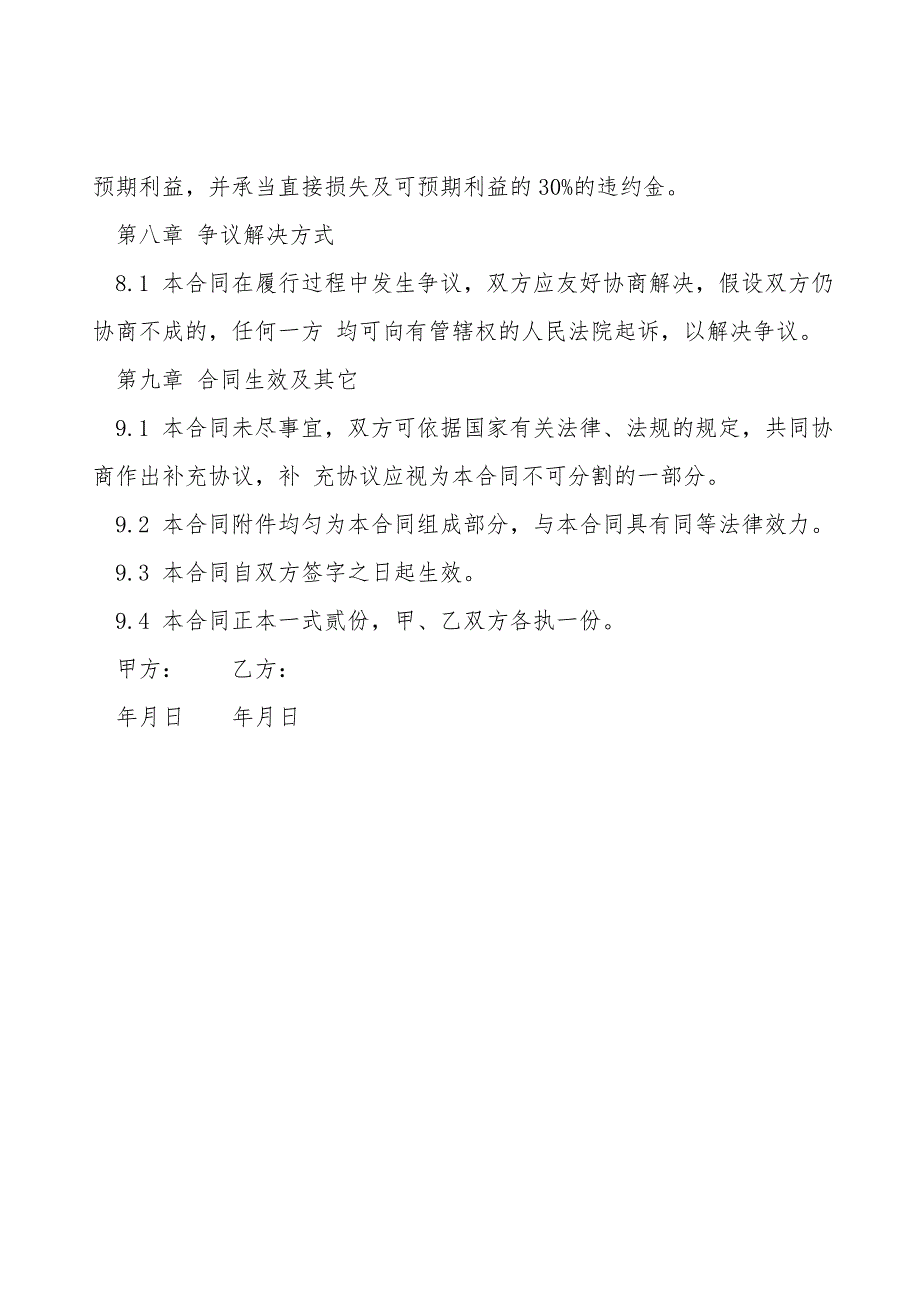 预期利益，并承当直接损失及可预期利益的30%的违约金。
第八章 争议解决方式
8.1 本合同在履行过程中发生争议，双方应友好协商解决，假设双方仍
协商不成的，任何一方 均可向有管辖权的人民法院起诉，以解决争议。
第九章 合同生效及其它
9.1 本合同未尽事宜，双方可依据国家有关法律、法规的规定，共同协
商作出补充协议，补 充协议应视为本合同不可分割的一部分。
9.2 本合同附件均匀为本合同组成部分，与本合同具有同等法律效力。
9.3 本合同自双方签字之日起生效。
9.4 本合同正本一式贰份，甲、乙双方各执一份。
甲方： 乙方：
年月日 年月日